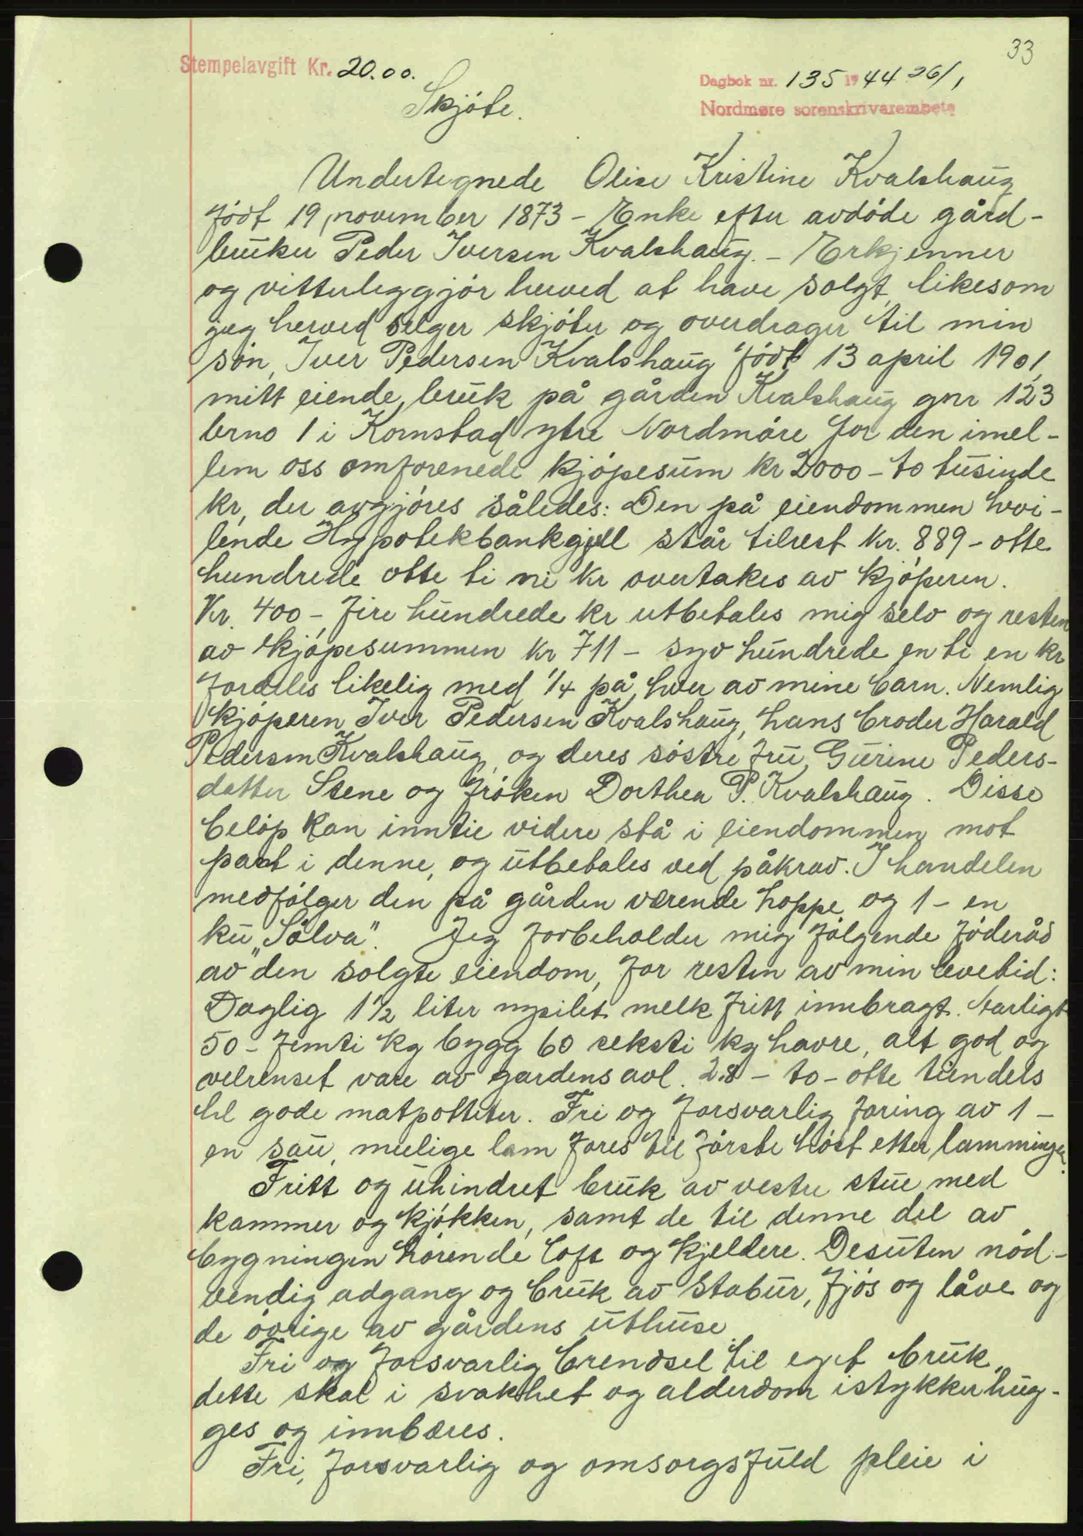 33
Stempelavgift Kr. 20.00.
Dagbok nr. 135 1944 26/1
Nordmøre sorenskrivarembete
Skjöte.
Undertegnede Olise Kristine Kvalshaug
född 19 november 1873 - Enke efter avdöde gård-
bruker Peder Iversen Kvalshaug. - Erkjenner
og vitterleggjör herved at have solgt, likesom
jeg herved selger skjöter og overdrager til min
sön, Iver Pedersen Kvalshaug födt 13 april 1901,
mitt eiende bruk på gården Kvalshaug gnr 123
brno 1 i Kornstad ytre Nordmöre for den imel-
lem oss omforenede kjöpesum kr 2000 - to tusinde
kr, der avgjöres således: Den på eiendommen hvi-
lende Hypotekbankgjell står tilrest kr. 889 - otte
hundrede otte ti ni kr overtakes av kjöperen.
Kr. 400 -, fire hundrede kr utbetales mig selv og resten
av kjöpesummen kr 711 - syv hundrede en ti en kr
fordeles likelig med 1/4 på hver av mine barn. Nemlig
kjöperen Iver Pedersen Kvalshaug, hans broder Harald
Pedersen Kvalshaug, og deres söstre fru, Gurine Peders-
datter Stene og fröken Dorthea P. Kvalshaug. Disse
belöp kan inntil videre stå i eiendommen mot
pant i denne, og utbetales ved påkrav. I handelen
medfölger den på gården værende hoppe og 1 - en
ku "Sölva". Jeg forbeholder mig fölgende föderåd
av den solgte eiendom, for resten av min levetid:
Daglig 1 1/2 liter nysilet melk fritt innbragt. Aarligt
50 - femti kg bygg 60 seksti kg havre, alt god og
velrenset vare av gardens avl. 28 - to - otte tiendels
hl gode matpotteter. Fri og forsvarlig foring av 1 -
en sau, mulige lam fores til förste höst etter lammingen.
Fritt og uhindret bruk av vestre stue med
kammer og kjökken, samt de til denne del av
bygningen hörende loft og kjeldere. Desuten nöd-
vendig adgang og bruk av stabur, fjös og låve og
de övrige av gårdens uthuse.
Fri og forsvarlig brendsel til eget bruk,
dette skal i svakhet og alderdom istykkerhug-
ges og innbæres.
Fri, forsvarlig og omsorgsfuld pleie i